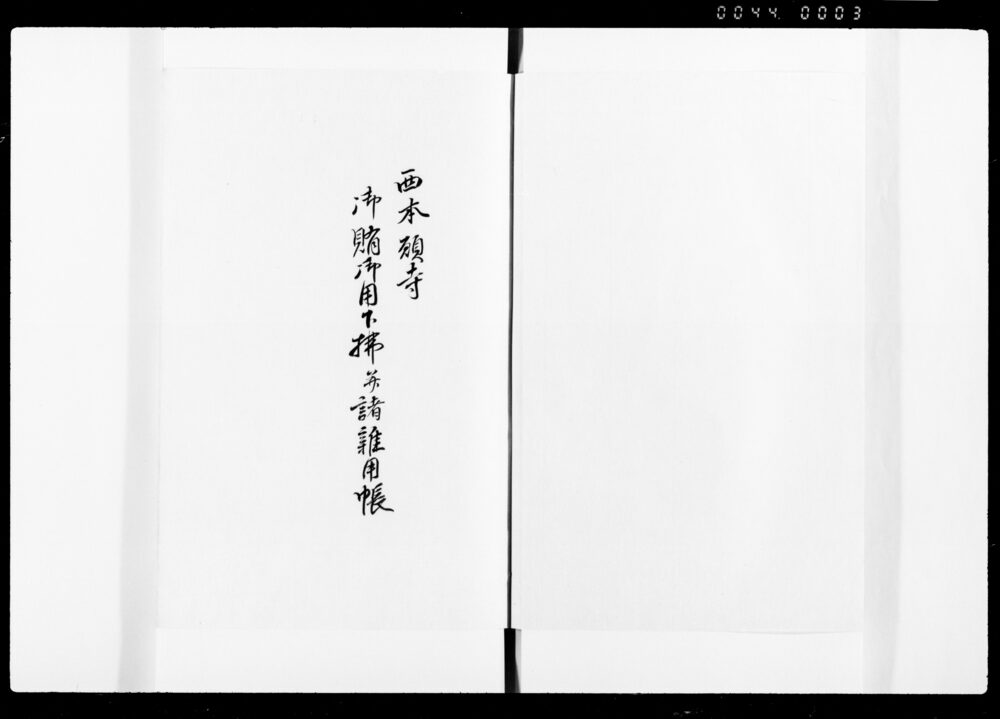 0044. 0003
西本願寺
御賄御用下拂并諸雜用帳